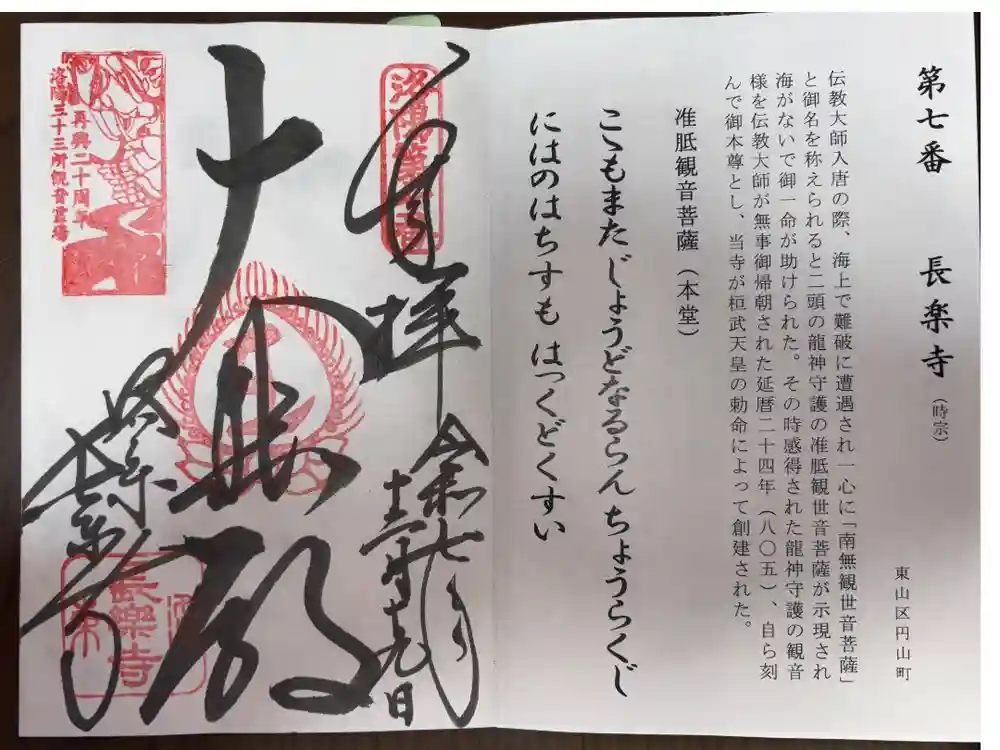 第七番 長楽寺（時宗）
東山区円山町
伝教大師入唐の際、海上で難破に遭遇され一心に「南無観世音菩薩」
と御名を称えられると二頭の龍神守護の准胝観世音菩薩が示現され
海がないで御一命が助けられた。その時感得された龍神守護の観音
様を伝教大師が無事御帰朝された延暦二十四年（八〇五）、自ら刻
んで御本尊とし、当寺が桓武天皇の勅命によって創建された。
准胝観音菩薩（本堂）
こもまた じょうどなるらん ちょうらくじ
にはのはちすも はっくどくすい
奉拝
令和七年
十二月十九日
大悲殿
長楽寺
再興二十周年
洛陽三十三所観音霊場
長樂寺